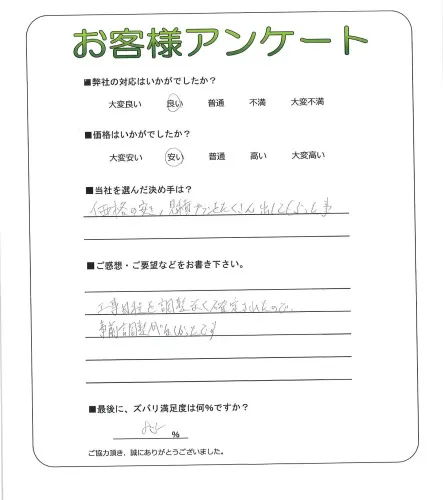 お客様アンケート
■弊社の対応はいかがでしたか?
大変良い 良い 普通 不満 大変不満
■価格はいかがでしたか?
大変安い 安い 普通 高い 大変高い
■当社を選んだ決め手は?
価格の安さ、見積プランをたくさん出してもらった事
■ご感想・ご要望などをお書き下さい。
工事日程を調整なく確定されたので、
事前に調整がほしかったです
■最後に、ズバリ満足度は何%ですか?
85 %
ご協力頂き、誠にありがとうございました。